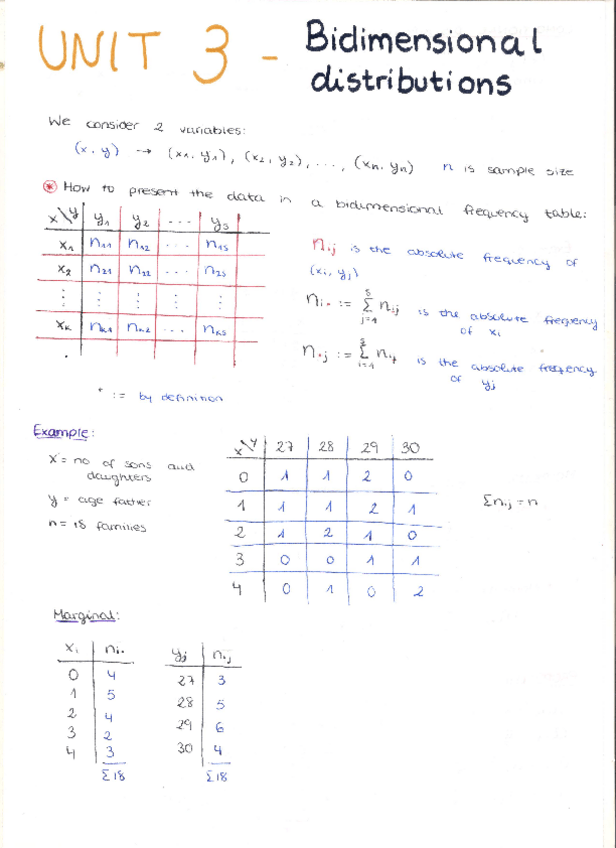 UNIT 3 - Bidimensional
distributions
We consider 2 variables:
(x, y) → (x1, y1), (x2, y2), ..., (xn, yn) n is sample size
* How to present the data in a bidimensional frequency table:
x\y y1 y2 ... ys
x1 n11 n12 ... n1s
x2 n21 n22 ... n2s
⋮ ⋮ ⋮ ⋮ ⋮
xk nk1 nk2 ... nks
nij is the absolute frequency of
(xi, yj)
ni• := Σ(j=1 to s) nij is the absolute frequency
of xi
n•j := Σ nij is the absolute frequency
of yj
* := by definition
Example:
x = no of sons and
daughters
y = age father
n = 18 families
x\y 27 28 29 30
0 1 1 2 0
1 1 1 2 1
2 1 2 1 0
3 0 0 1 1
4 0 1 0 2
Σnij = n
Marginal:
xi ni•
0 4
1 5
2 4
3 2
4 3
Σ18
yj n•j
27 3
28 5
29 6
30 4
Σ18